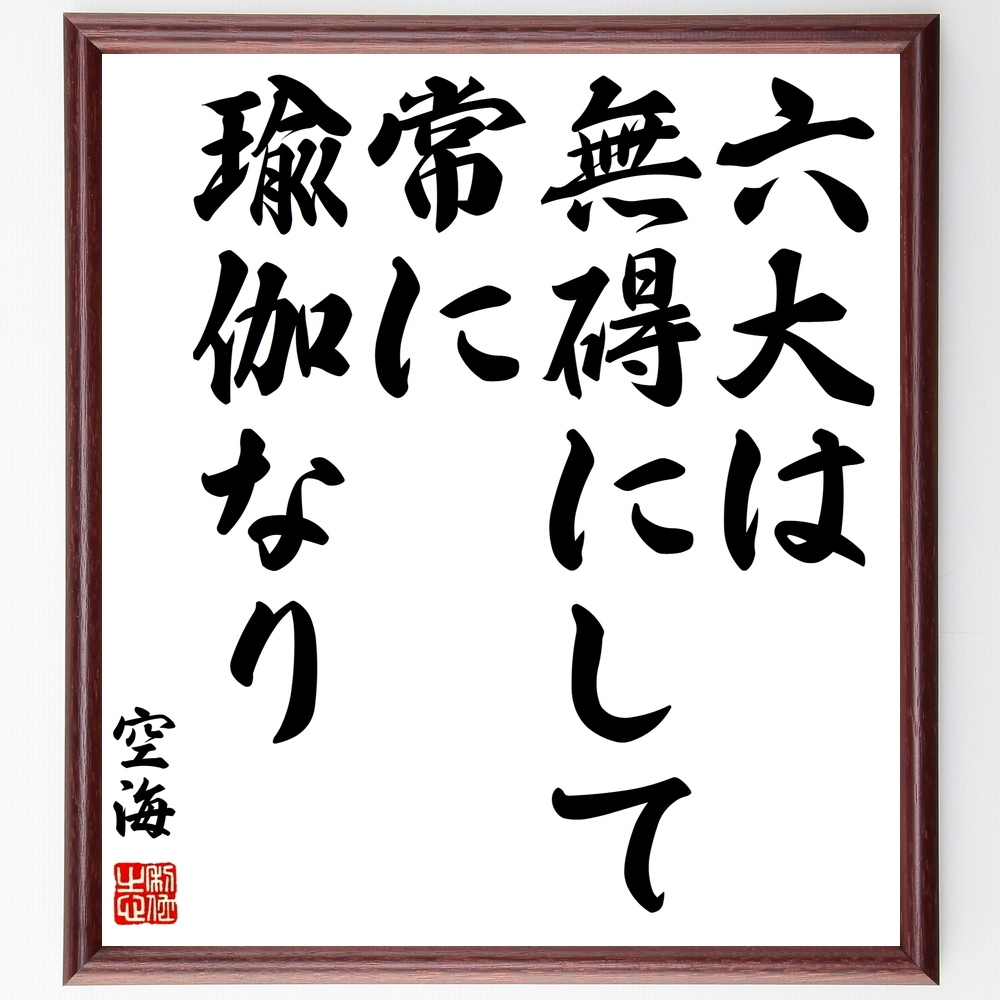 六大は
無碍にして
常に
瑜伽なり
空海